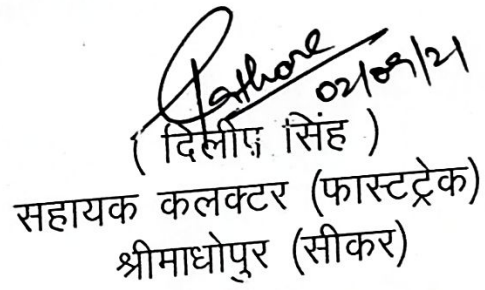 Rathore
02/09/21
( दिलीप सिंह )
सहायक कलक्टर (फास्टट्रेक)
श्रीमाधोपुर (सीकर)